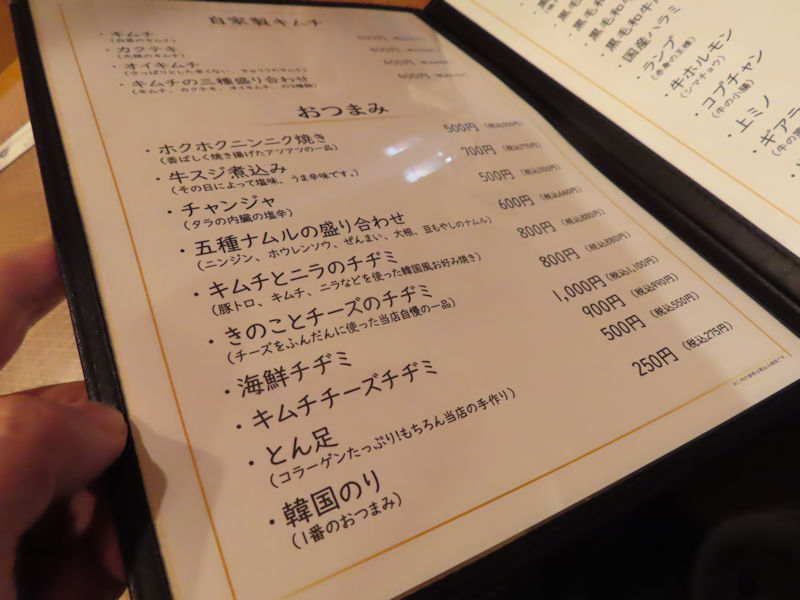 自家製キムチ
・キムチ 400円
(白菜のキムチ)
・カクテキ 400円
(大根のキムチ)
・オイキムチ 400円
(さっぱりとした辛くない、きゅうりのキムチ)
・キムチの三種盛り合わせ 600円
(キムチ、カクテキ、オイキムチ、の3種類)
おつまみ
・ホクホクニンニク焼き 500円
(香ばしく焼き揚げたアツアツの一品)
・牛スジ煮込み 700円 (税込770円)
(その日によって塩味、うま辛味です。)
・チャンジャ 500円 (税込550円)
(タラの内臓の塩辛)
・五種ナムルの盛り合わせ 600円 (税込660円)
(ニンジン、ホウレンソウ、ぜんまい、大根、豆もやしのナムル)
・キムチとニラのチヂミ 800円 (税込880円)
(豚トロ、キムチ、ニラなどを使った韓国風お好み焼き)
・きのことチーズのチヂミ 800円 (税込880円)
(チーズをふんだんに使った当店自慢の一品)
・海鮮チヂミ 1,000円 (税込1,100円)
・キムチチーズチヂミ 900円 (税込990円)
・とん足 500円 (税込550円)
(コラーゲンたっぷり!もちろん当店の手作り)
・韓国のり 250円 (税込275円)
(1番のおつまみ)
・黒毛和牛
・国産ハラミ
・ランプ
(赤身の王様)
・牛ホルモン
(シマチョウ)
・コプチャン
(牛の小腸)
・上ミノ
・ギアラ